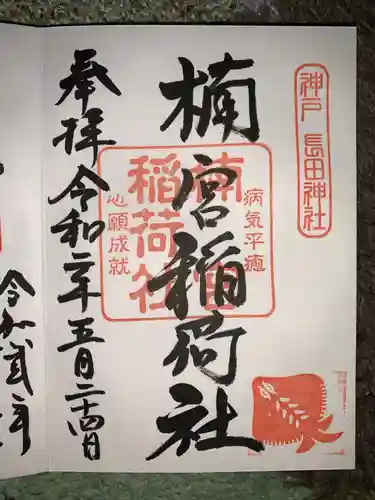 神戸 長田神社
楠宮稲荷社
病気平癒
楠宮
稲荷社
心願成就
奉拝
令和二年五月二十四日
令和弐年